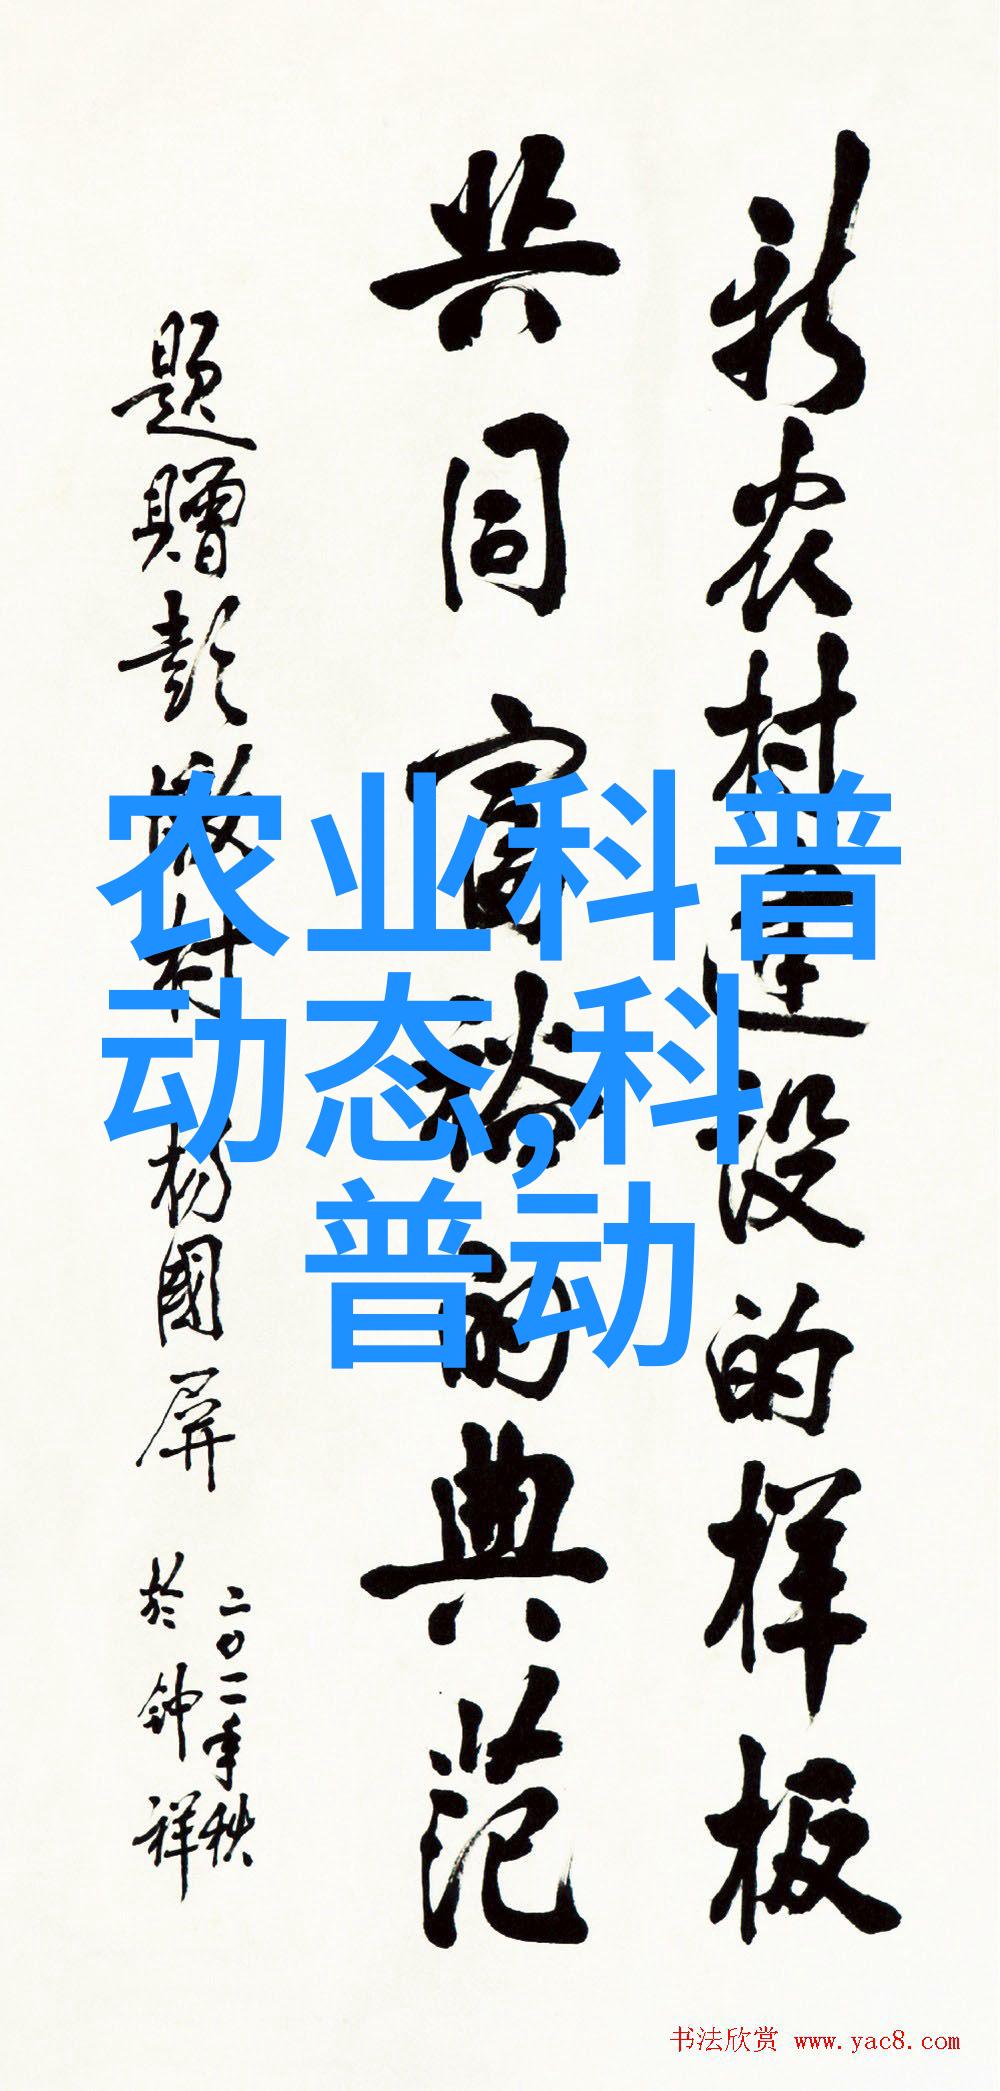 新农村建设的样板
共同富裕的典范
题赠彭墩村 杨国屏
二〇一一年秋
於钟祥
农业科普
动态,科
普动
书法欣赏 www.yac8.com